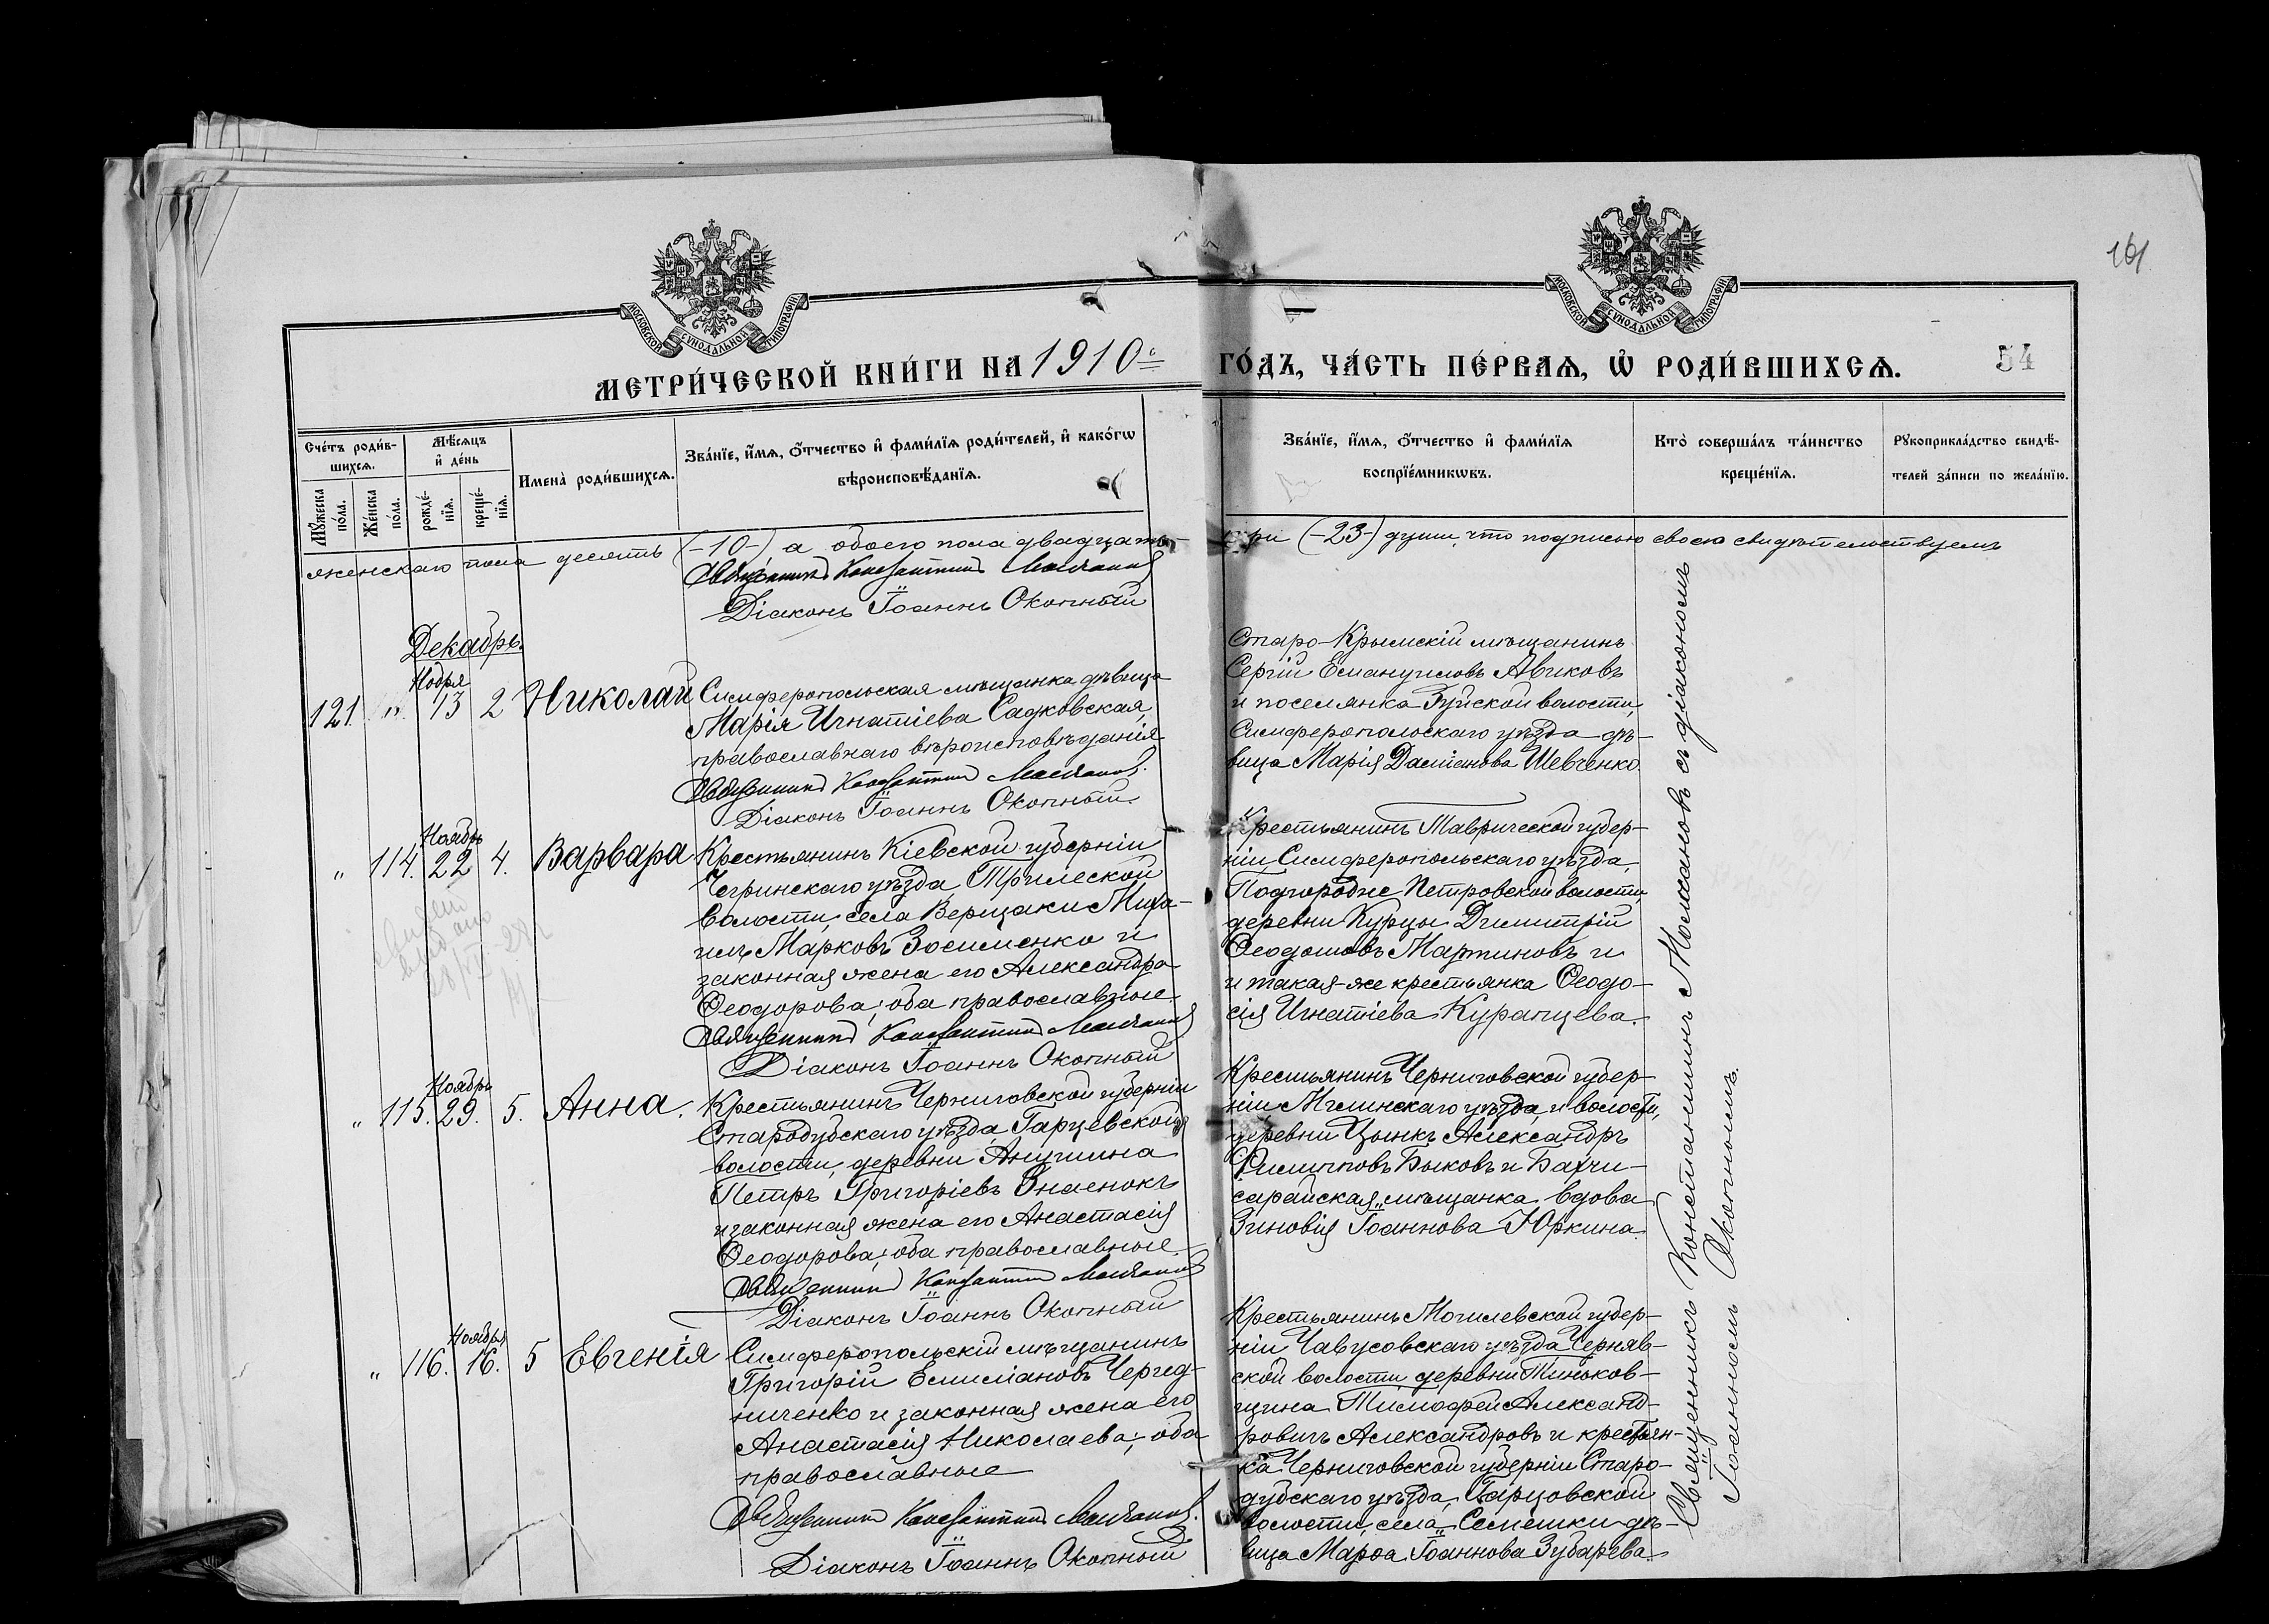 161
МОСКОВСКОЙ СѴНОДАЛЬНОЙ ТИПОГРАФІИ
МОСКОВСКОЙ СѴНОДАЛЬНОЙ ТИПОГРАФІИ
МЕТРИ́ЧЕСКОЙ КНИ́ГИ НА 1910 ГО́ДЪ, ЧА́СТЬ ПЕ́РВАѦ, Ѽ РОДИ́ВШИХСѦ.
54
Сче́тъ роди́в-
шихсѧ.
Мꙋ́жеска по́ла.
Же́нска по́ла.
Мѣ́сѧцъ и҆ де́нь
рожде́-нїѧ.
креще́-нїѧ.
Имена̀ роди́вшихсѧ.
Зва́нїе, и҆́мѧ, ѻ҆́тчество и҆ фами́лїѧ роди́телей, и҆ како́гѡ
вѣроисповѣ́данїѧ.
Зва́нїе, и҆́мѧ, ѻ҆́тчество и҆ фами́лїѧ
воспрїе́мникѡвъ.
Кто̀ соверша́лъ та́инство
креще́нїѧ.
Рꙋкоприкла́дство свидѣ́-
телей за́писи по жела́нїю.
женскаго пола десять (-10-) а обоего пола двадцать-
три (-23-) души, что подписью своею свидѣтельствуемъ
Священникъ Константинъ Молчановъ
Діаконъ Іоаннъ Окопный
Декабрь.
Ноября
121. " 13 2 Николай
Симферопольская мѣщанка дѣвица
Марія Игнатіева Садковская,
православнаго вѣроисповѣданія
Священникъ Константинъ Молчановъ.
Діаконъ Іоаннъ Окопный.
Старо-Крымскій мѣщанинъ
Сергій Емануиловъ Авиковъ
и поселянка Зуйской волости,
Симферопольскаго уѣзда дѣ-
вица Марія Даміанова Шевченко.
Ноябрь
" 114. 22 4. Варвара
Крестьянинъ Кіевской губерніи
Чигринскаго уѣзда, Трилеской
волости, села Вершаки Миха-
илъ Марковъ Зосименко и
законная жена его Александра
Ѳеодорова; оба православные.
Священникъ Константинъ Молчановъ
Діаконъ Іоаннъ Окопный
Крестьянинъ Таврической губер-
ніи Симферопольскаго уѣзда,
Подгородне Петровской волости,
деревни Курцы Димитрій
Ѳеодосіовъ Мартиновъ и
и такая-же крестьянка Ѳеодо-
сія Игнатіева Курапцева.
Ноябрь
" 115. 29. 5. Анна.
Крестьянинъ Черниговской губерніи
Стародубскаго уѣзда, Гарцевской
волости, деревни Анушина
Петръ Григоріевъ Знаенокъ
и законная жена его Анастасія
Ѳеодорова; оба православные.
Священникъ Константинъ Молчановъ
Діаконъ Іоаннъ Окопный
Крестьянинъ Черниговской губер-
ніи Мглинскаго уѣзда, и волости,
деревни Цынкъ Александръ
Филипповъ Быковъ и Бахчи-
сарайская мѣщанка вдова
Зиновія Іоаннова Юркина.
Ноября
" 116. 16. 5 Евгенія
Симферопольскій мѣщанинъ
Григорій Емиліановъ Черед-
ниченко и законная жена его
Анастасія Николаева; оба
православные
Священникъ Константинъ Молчановъ.
Діаконъ Іоаннъ Окопный
Крестьянинъ Могилевской губер-
ніи Чавусовскаго уѣзда, Черняв-
ской волости, деревни Тиньков-
щина Тимофей Александ-
ровичъ Александровъ и крестьян-
ка Черниговской губерніи Старо-
дубскаго уѣзда, Гарцовской
волости, села Семешки дѣ-
вица Марѳа Іоаннова Зубарева.
Священникъ Константинъ Молчановъ съ діакономъ
Іоанномъ Окопнымъ.